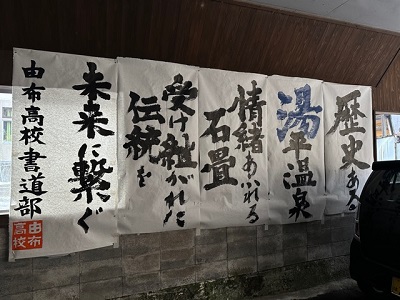 歴史ある
湯平温泉
情緒あふれる
石畳
受け継がれた
伝統を
未来に繋ぐ
由布高校書道部
由布
高校